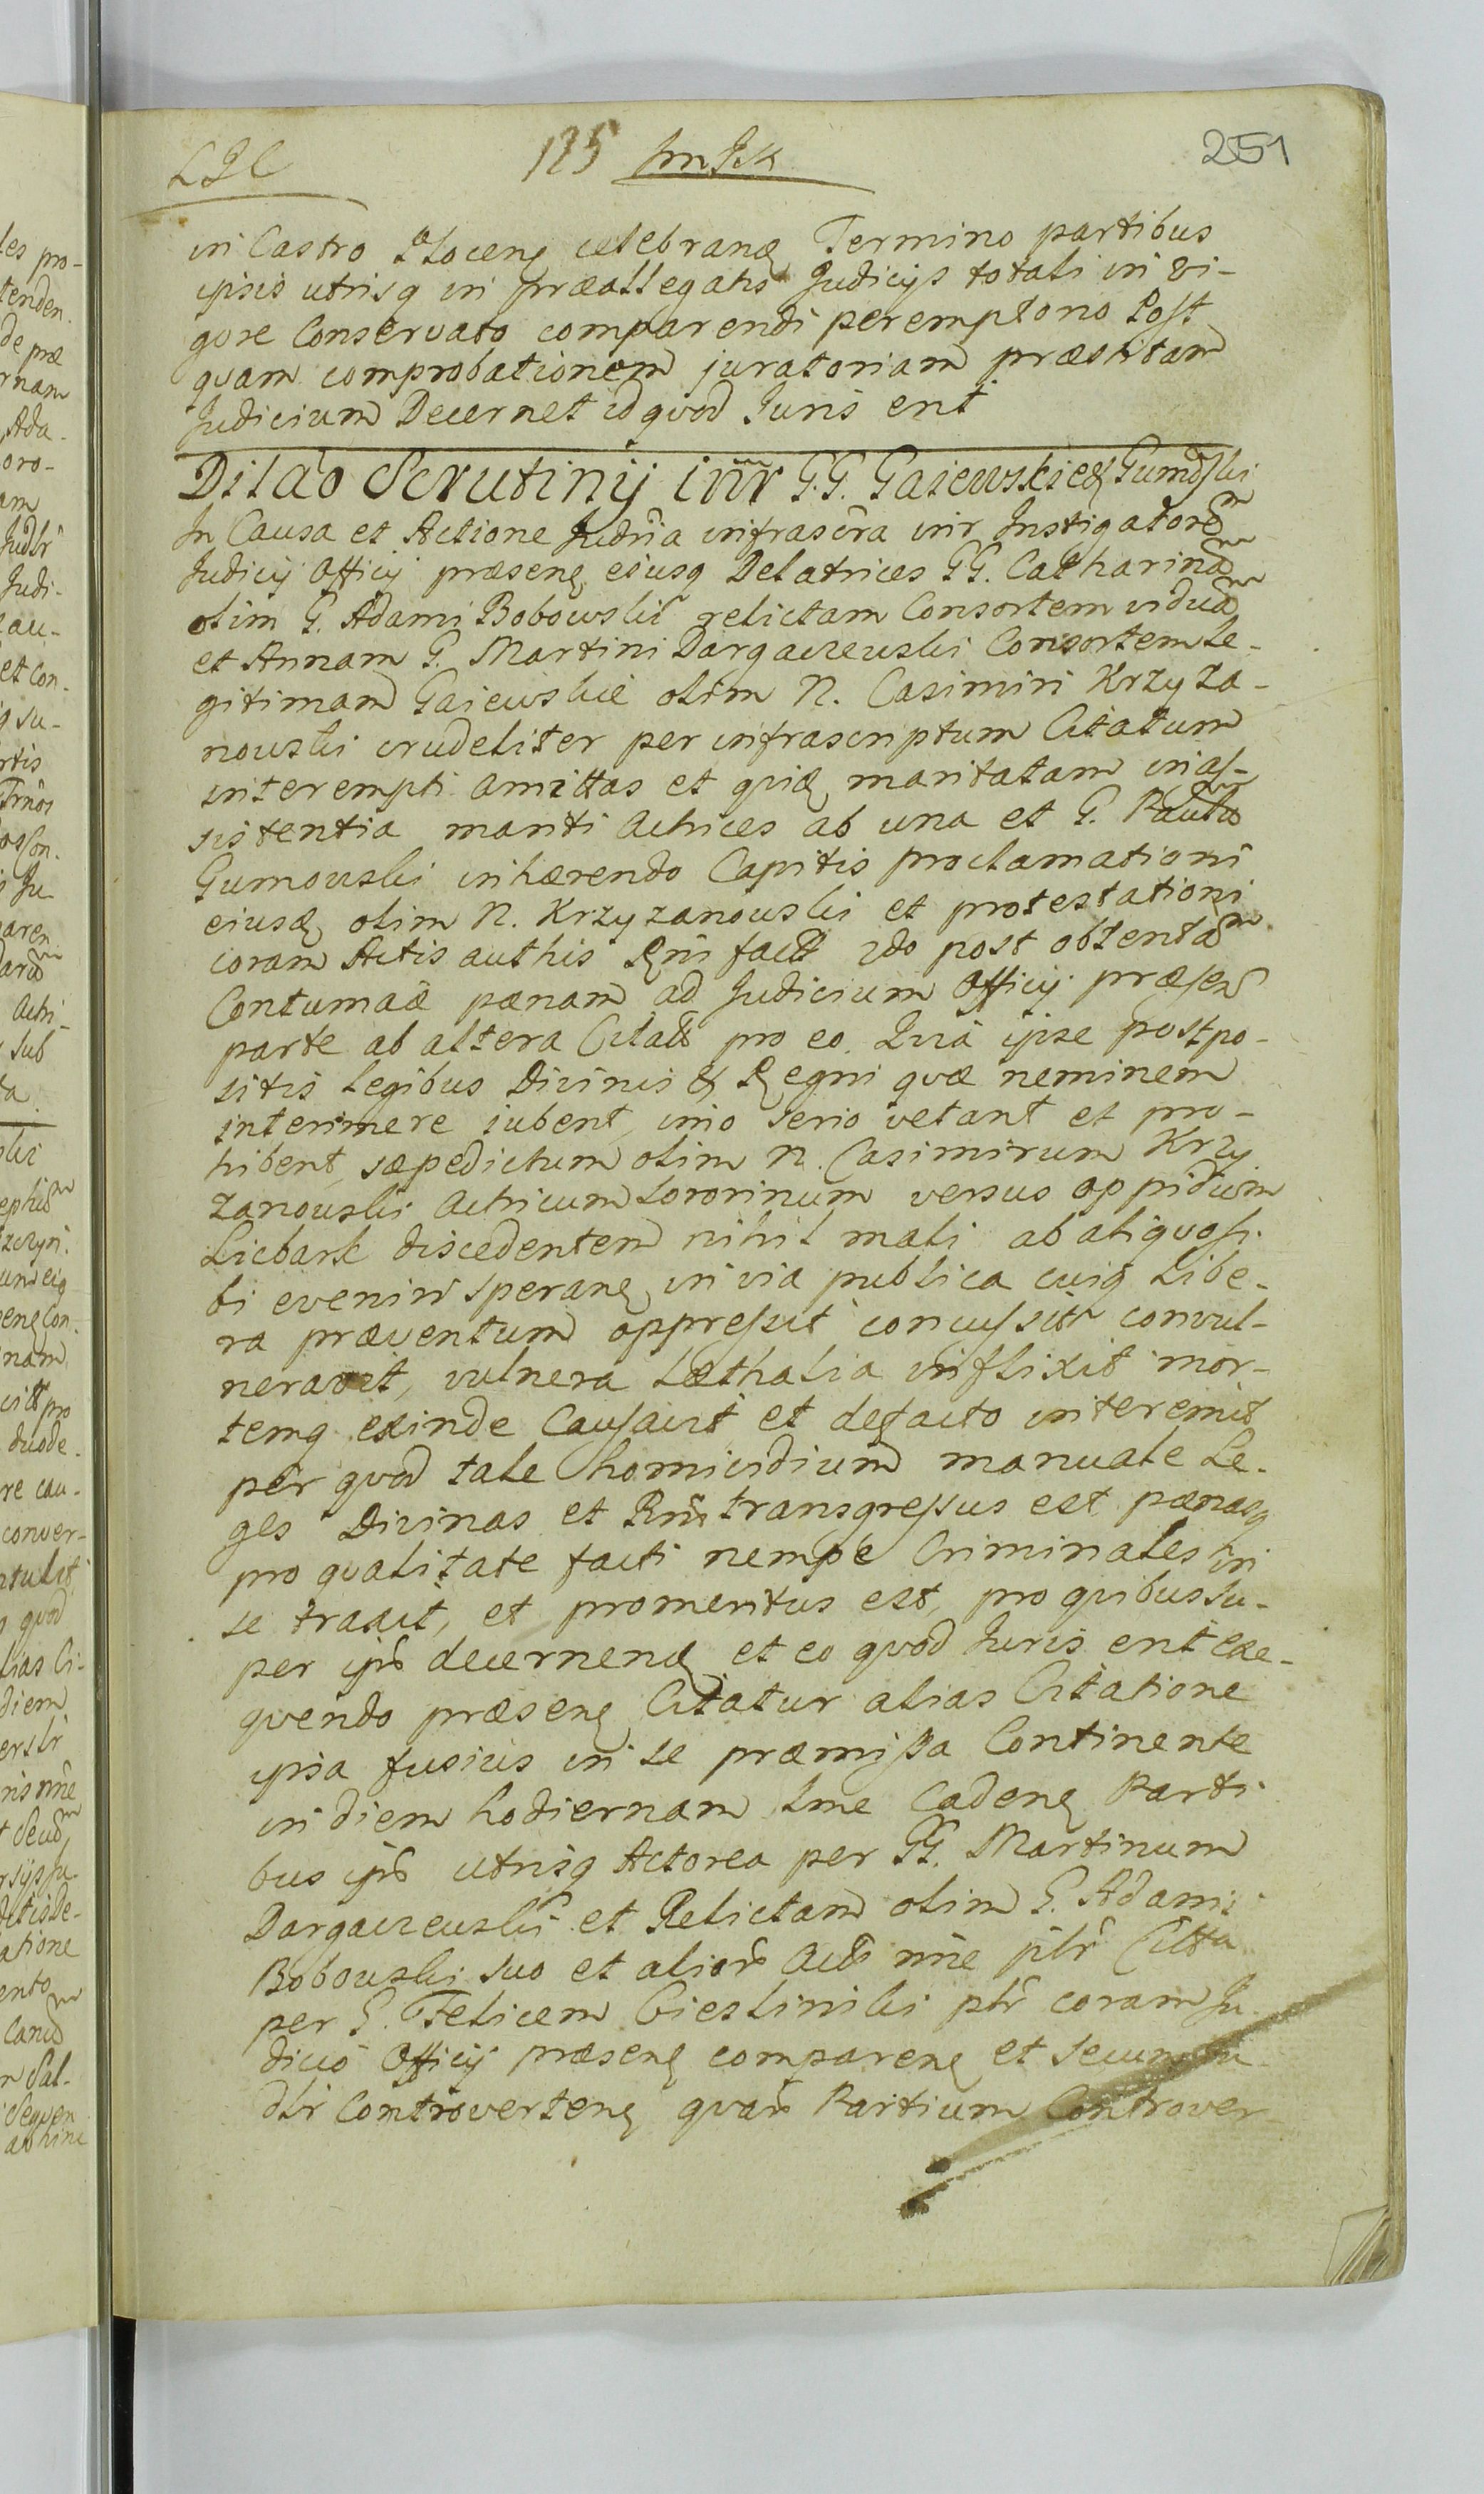 185
251
in Castro Ploceng celebranđ Termino partibus
ipsis utrisq in præallegatis Judicijs totali in vi-
gore Conservato comparendi peremptorio Post
quam comprobationem juratoriam præstitam
Judicium Decernet id quod Juris erit
Dilao Scrutinij intr G.G. Gaiewskie & Gumoski
In Causa et Actione Judria infrascra intr Instigatorem
Judicij Officij præsenę eiusq Delatrices GG. Catharinam
olim G. Adami Bobowski relictam Consortem viduam
et Annam G. Martini Dargaczewski Consortem Le-
gitimam Gaiewskie olim N. Casimiri Krzyza-
nowski crudeliter per infrascriptum Citatum
interempti Amittas et quidę maritatam in as-
sistentia mariti Actrices ab una et G. Paulum
Gumowski inhærendo Capitis proclamationi
eiusdę olim N. Krzyzanowski et protestationi
coram Actis authis Rni fact 2do post obtentam
Contumaciæ pænam ad Judicium Officij præsens
parte ab altera Citatū pro eo. Quia ipse postpo-
sitis Legibus Divinis & Regni quæ neminem
interimere iubent, imo serio vetant et pro-
hibent, sæpedictum olim N. Casimirum Krzy
zanowski Actricum Sororinum versus oppidum
Licbark discedentem nihil mali ab aliquo si-
bi eveniri speranę in via publica cuiq Libe-
ra præventum oppressit concussit convul-
neravit, vulnera Læthalia inflixit mor-
temq exinde Causavit et de facto interemit
per quod tale homicidium manuale Le-
ges Divinas et Rni transgressus est pænasq
pro qualitate facti nempe Criminales in
se traxit, et promeritus est, pro quibus su-
per ijs decernenđ et eo quod Juris erit exe-
quendo præsenę Citatur alias Citatione
ipsa fusius in se præmissa Continente
in diem hodiernam Lme Cadenę Parti-
bus ijs utrisq Actorea per GG. Martinum
Dargaczewski et Relictam olim G. Adami
Bobowski suo et alior Act nne plr Citta
per G. Felicem Ciesliniski plr coram Ju-
dicio Officij præsenę comparenę et secum Ju-
dlr Controvertenę quar Partium Controver-